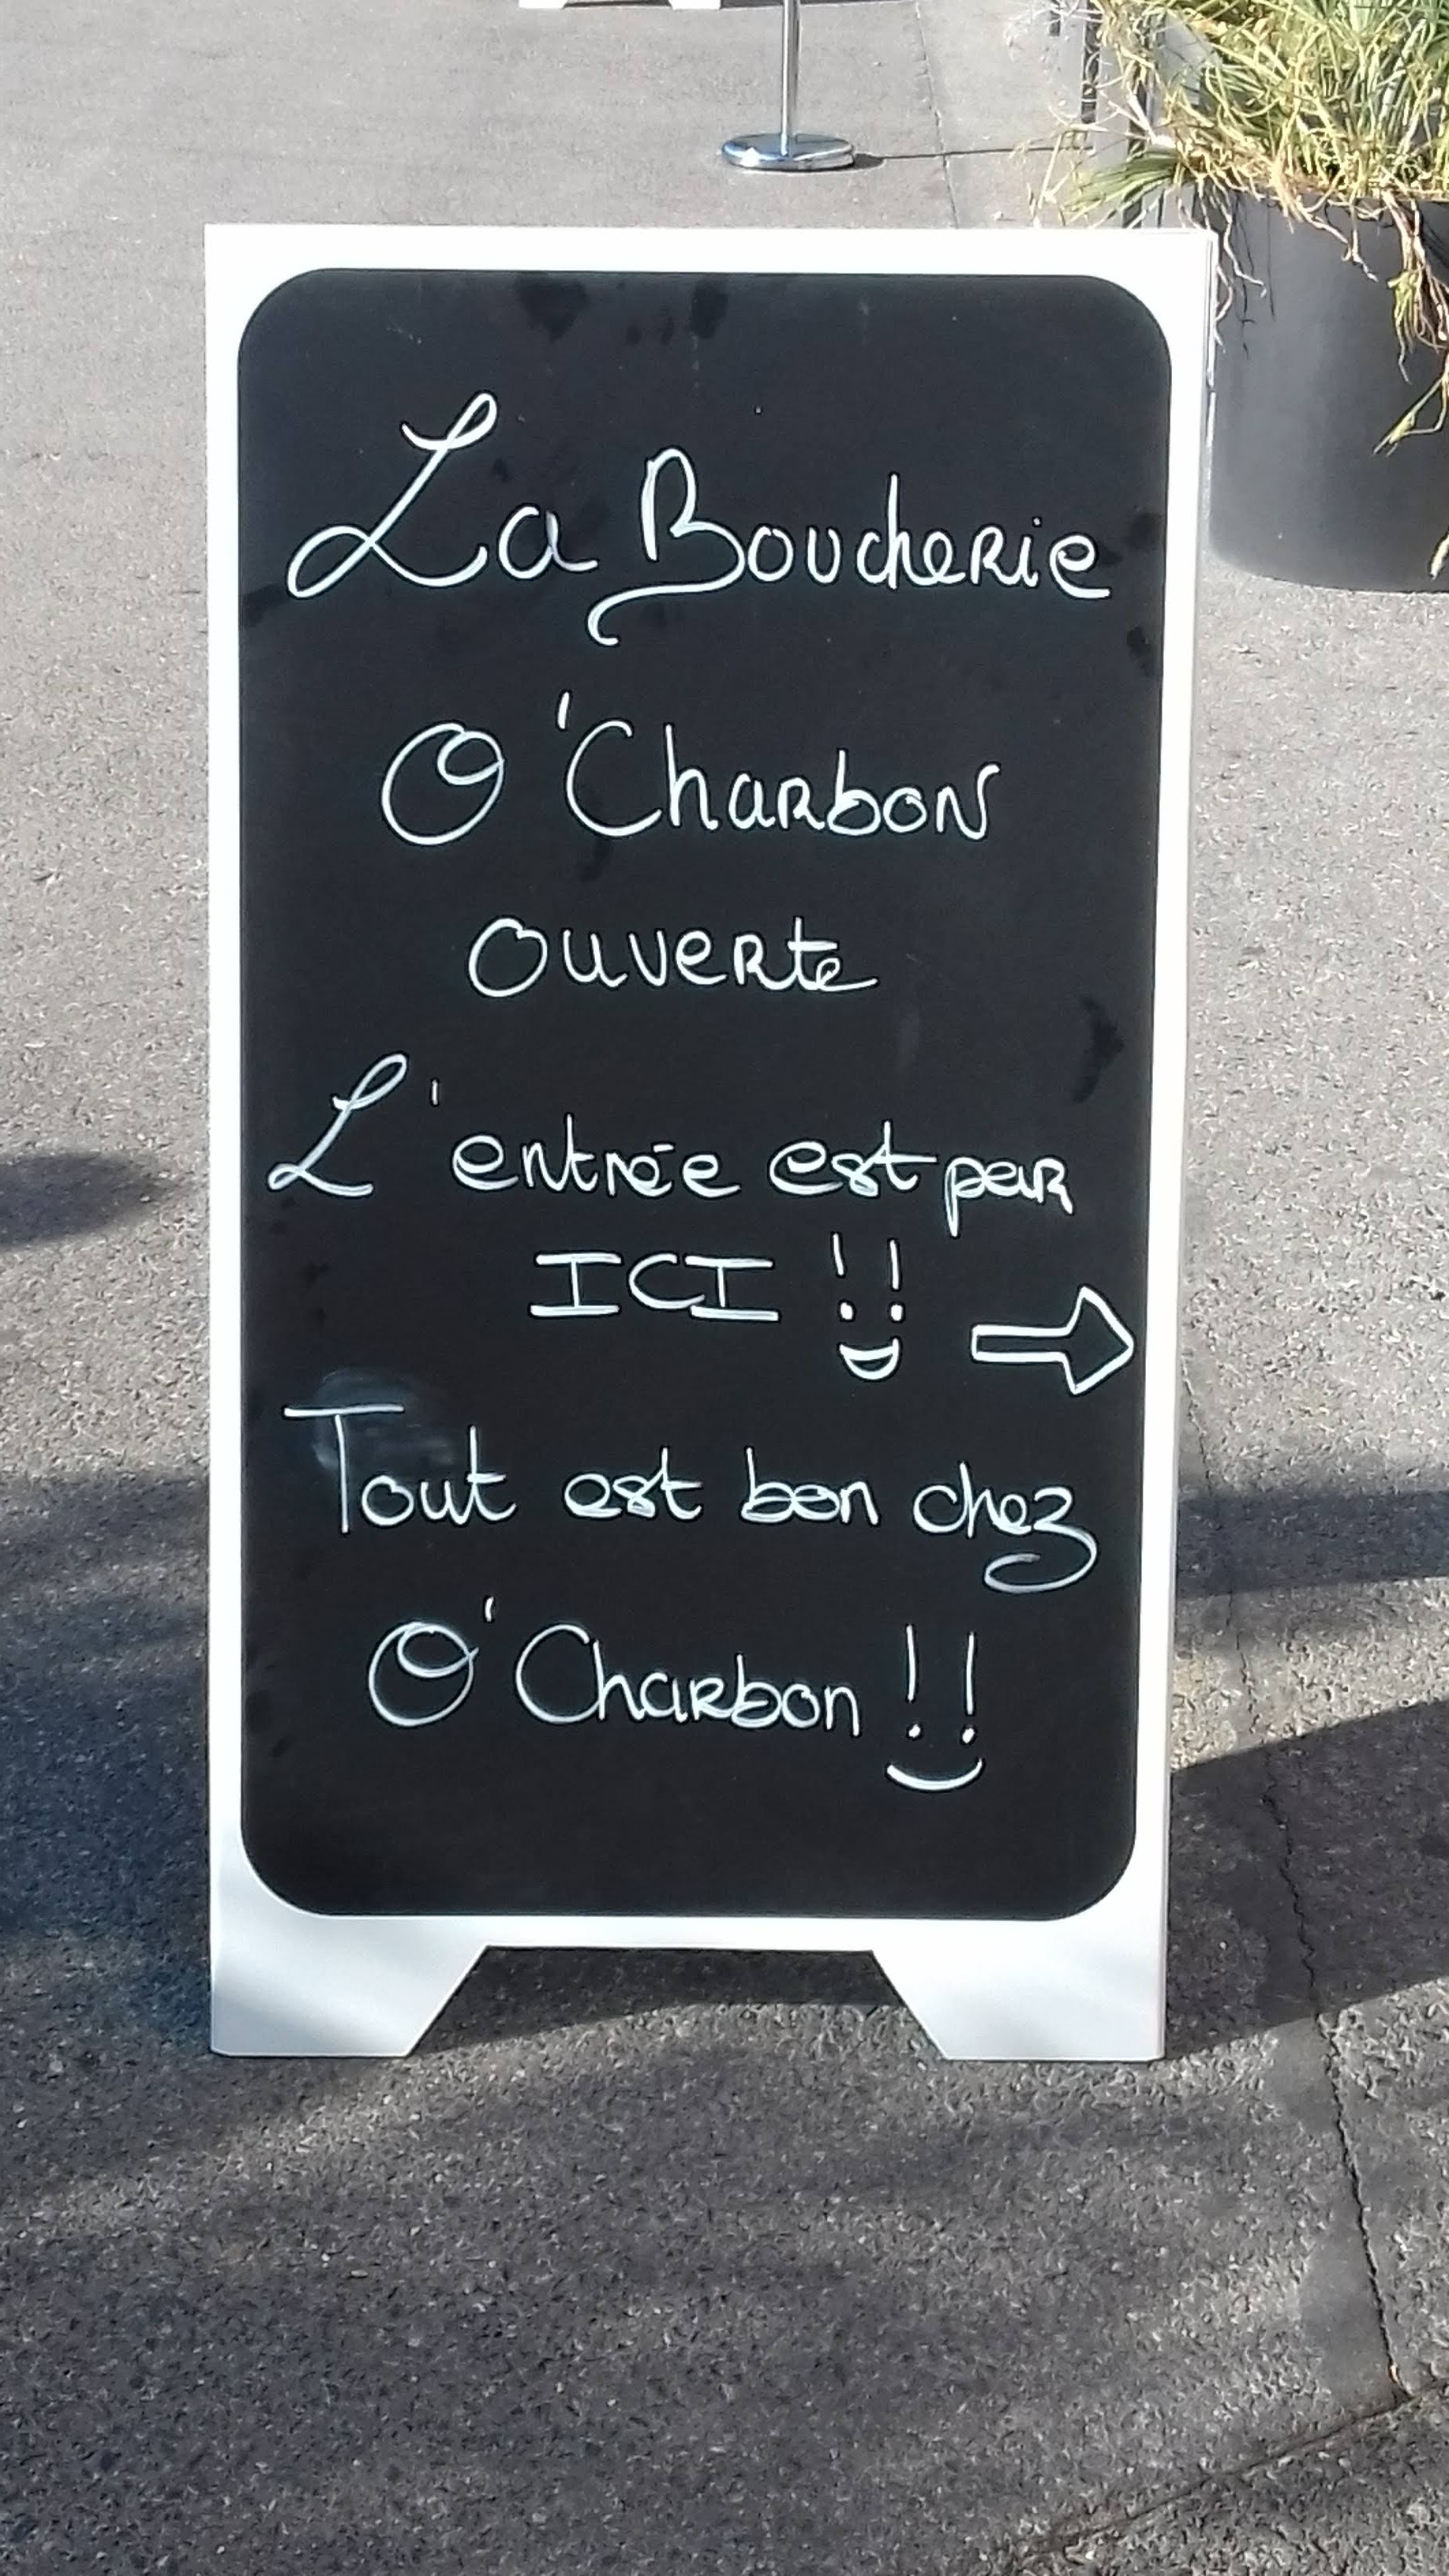 La Boucherie
O'Charbon
ouverte
L'entrée est par
ICI !!
Tout est bon chez
O'Charbon !!